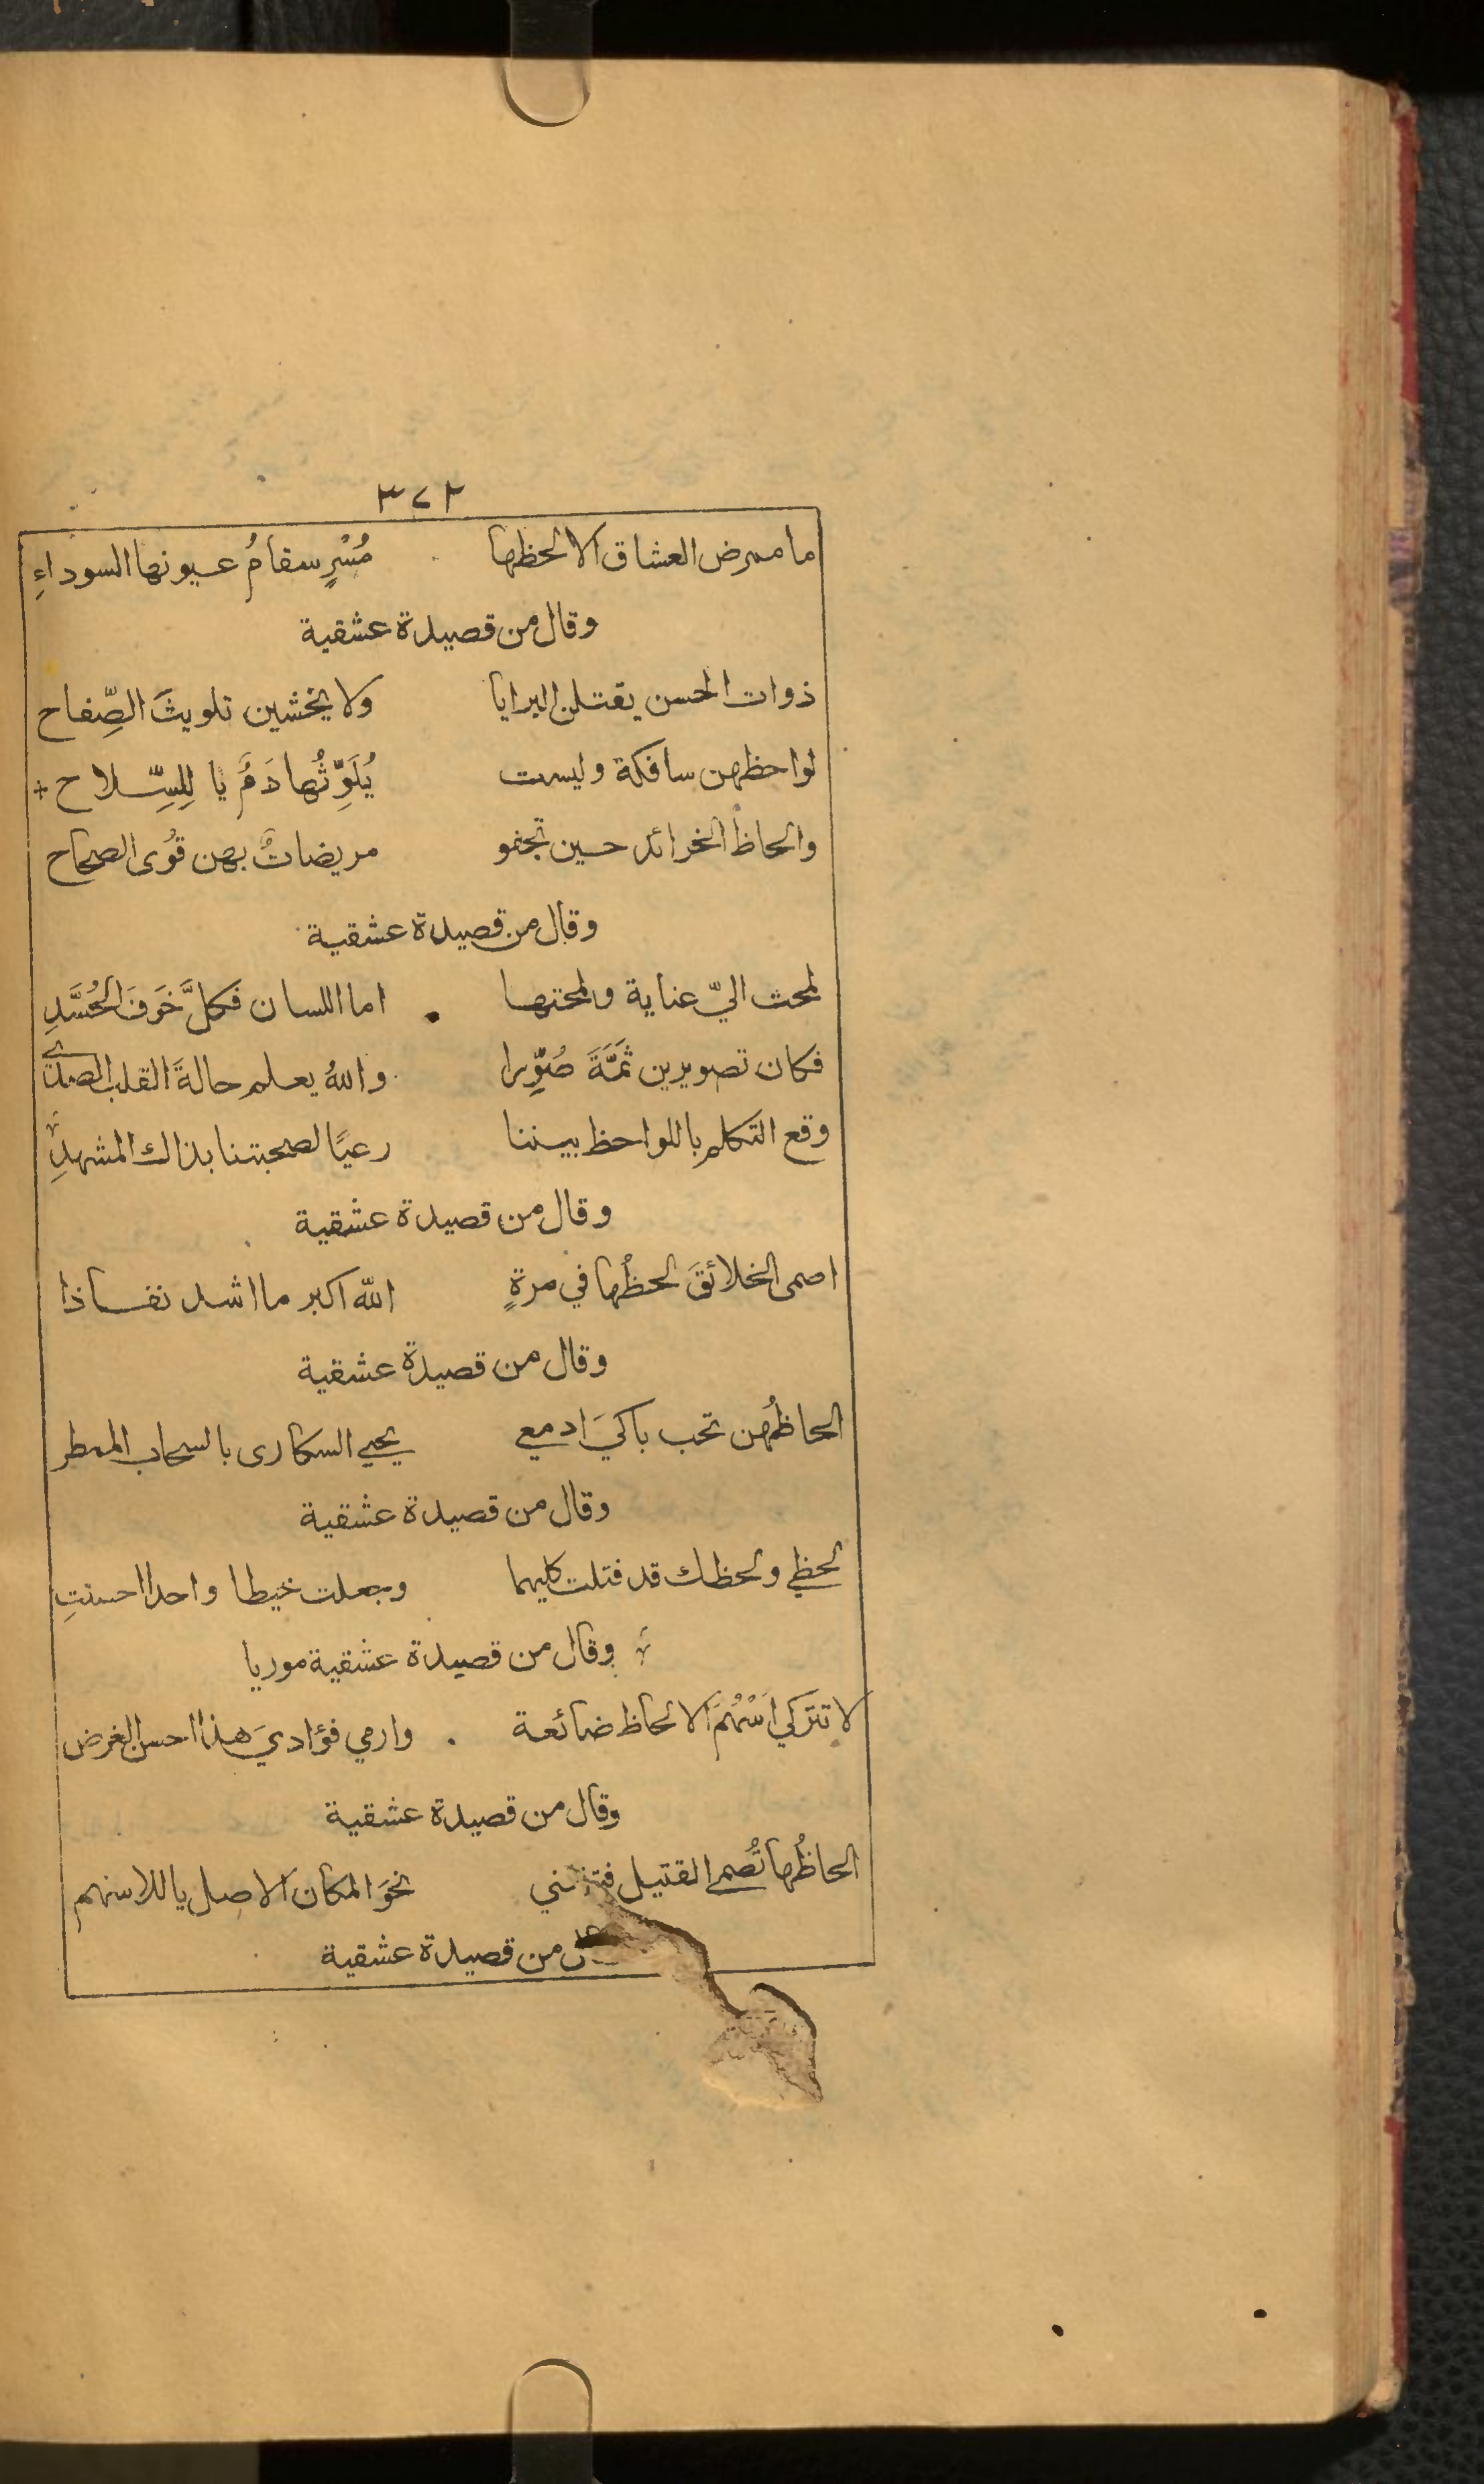 ٣٧٢
ما ممرض العشاق الا لحظها مُسْرٍ سقامُ عيونها السوداءِ
وقال من قصيدة عشقية
ذوات الحسن يقتلن البرايا ولا يخشين تلويثَ الصِّفاح
لواحظهن سافكة وليست يُلَوِّثُها دَمٌ يا لِلسِّلاح
والحاظ الخرائد حين تجنو مريضاتٌ بهن قُوى الصحاح
وقال من قصيدة عشقية
لمحت اليّ عناية ولمحتها اما اللسان فكلَّ خَوفَ الحُسَّدِ
فكان تصويرين ثَمَّةَ صُوِّرا واللهُ يعلم حالةَ القلب الصدي
وقع التكلم باللواحظ بيننا رعيًا لصحبتنا بذاك المشهدِ
وقال من قصيدة عشقية
اصمى الخلائقَ لحظُها في مرةٍ الله اكبر ما اشد نفاذا
وقال من قصيدة عشقية
الحاظُهن تحب باكيَ ادمعي يحيي السكارى بالسحاب الممطر
وقال من قصيدة عشقية
لحظي ولحظك قد فتلت كليهما وجعلت خيطا واحدا احسنتِ
وقال من قصيدة عشقية موريا
لا تتركي اَسْهُمَ الالحاظ ضائعة وارمي فؤاديَ هذا احسن الغرض
وقال من قصيدة عشقية
الحاظُها تُصمي القتيل نحوَ المكان الاصل يا للاسهم
من قصيدة عشقية